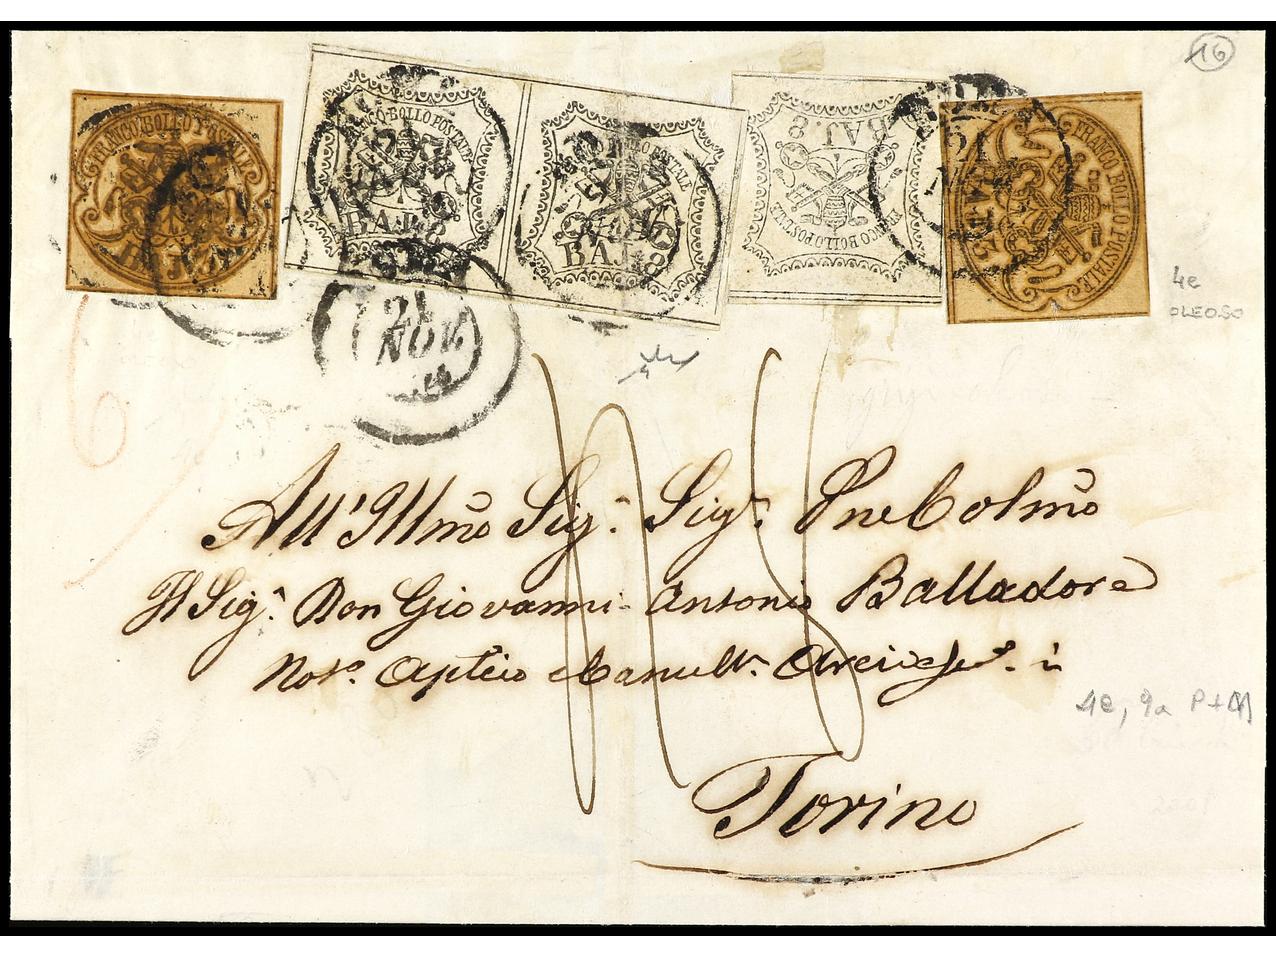 16
FRANCO BOLLO POSTALE
BAJ
FRANCO BOLLO POSTALE
BAJ. 8
FRANCO BOLLO POSTALE
BAJ. 8
BAJ. 8
FRANCO BOLLO POSTALE
21
FRANCO BOLLO POSTALE
21
NOV.
4e
OLEOSO
All' Illmo Sig.r Sig.r Pne Colmo
Il Sig.r Don Giovanni Antonio Balladore
Not.o Aptico
in
Torino
4e, 9a P+M